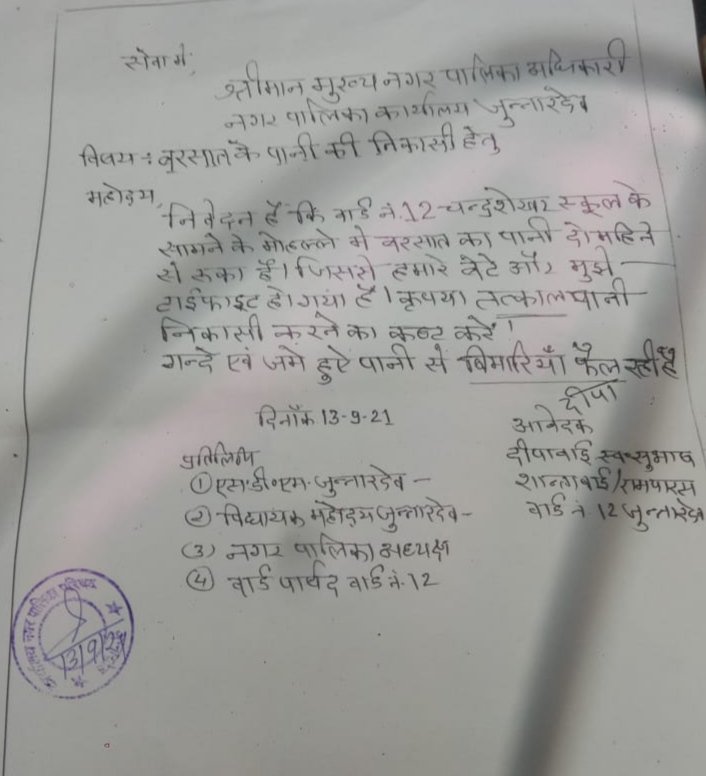 सेवा में,
श्रीमान मुख्य नगर पालिका अधिकारी
नगर पालिका कार्यालय जुन्नारदेव
विषय : बरसात के पानी की निकासी हेतु
महोदय,
निवेदन है कि वार्ड नं. 12 चन्द्रशेखर स्कूल के
सामने के मोहल्ले मे बरसात का पानी दो महिने
से रूका है। जिससे हमारे बेटे और मुझे -
टाईफाइट हो गया है। कृपया तत्काल पानी
निकासी करने का कष्ट करें।
गन्दे एवं जमे हुऐ पानी से बिमारियाँ फैल रही है
दीपा
दिनाँक 13-9-21
आवेदक
दीपाबाई स्व. सुभाष
शान्ताबाई / रामपारस
वार्ड नं. 12 जुन्नारदेव
प्रतिलिपि
① एस.डी.एम. जुन्नारदेव -
② विधायक महोदय जुन्नारदेव -
(3) नगर पालिका अध्यक्ष
④ वार्ड पार्षद वार्ड नं. 12
नगर पालिका परिषद
13/9/21